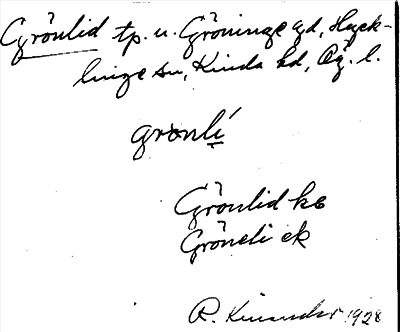 Grönlid tp. u. Gröninge gd, Hyck-
linge sn, Kinda hd, Ög. l.
grönlí
Grönlid kb
Gröneli ek
R. Kinander 1928